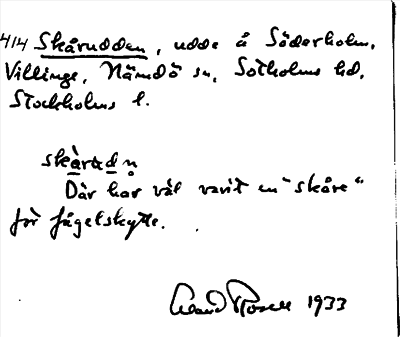 414 Skårudden, udde å Söderholm,
Villinge, Nämdö sn, Sotholms hd,
Stockholms l.
skàrudn
Där har väl varit en "skåre"
för fågelskytte.
1933